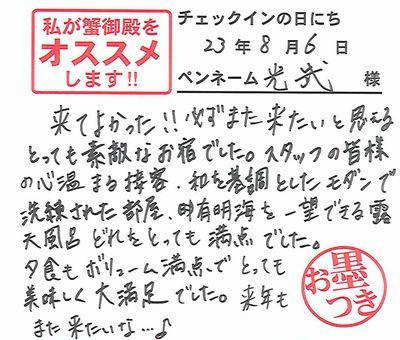 私が蟹御殿を
オススメ
します!!
チェックインの日にち
23年8月6日
ペンネーム 光武 様
来てよかった!!必ずまた来たいと思える
とっても素敵なお宿でした。スタッフの皆様
の心温まる接客、和を基調としたモダンで
洗練された部屋、有明海を一望できる露
天風呂 どれをとっても満点でした。
夕食もボリューム満点で とっても
美味しく大満足でした。来年も
また来たいな…♪
お墨つき